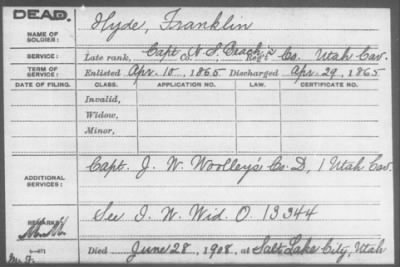 DEAD.
NAME OF SOLDIER: Hyde, Franklin
SERVICE: Late rank, Capt N. S. Beach's Co. Reg't Co. Utah Cav.
TERM OF SERVICE: Enlisted Apr. 10, 1865 Discharged Apr. 29, 1865
DATE OF FILING. CLASS. APPLICATION NO. LAW. CERTIFICATE NO.
Invalid,
Widow,
Minor,
ADDITIONAL SERVICES: Capt. J. W. Woolley's Co. D, 1 Utah Cav.
REMARKS: See I. W. Wid. O. 13344
Died June 28, 1908, at Salt Lake City, Utah